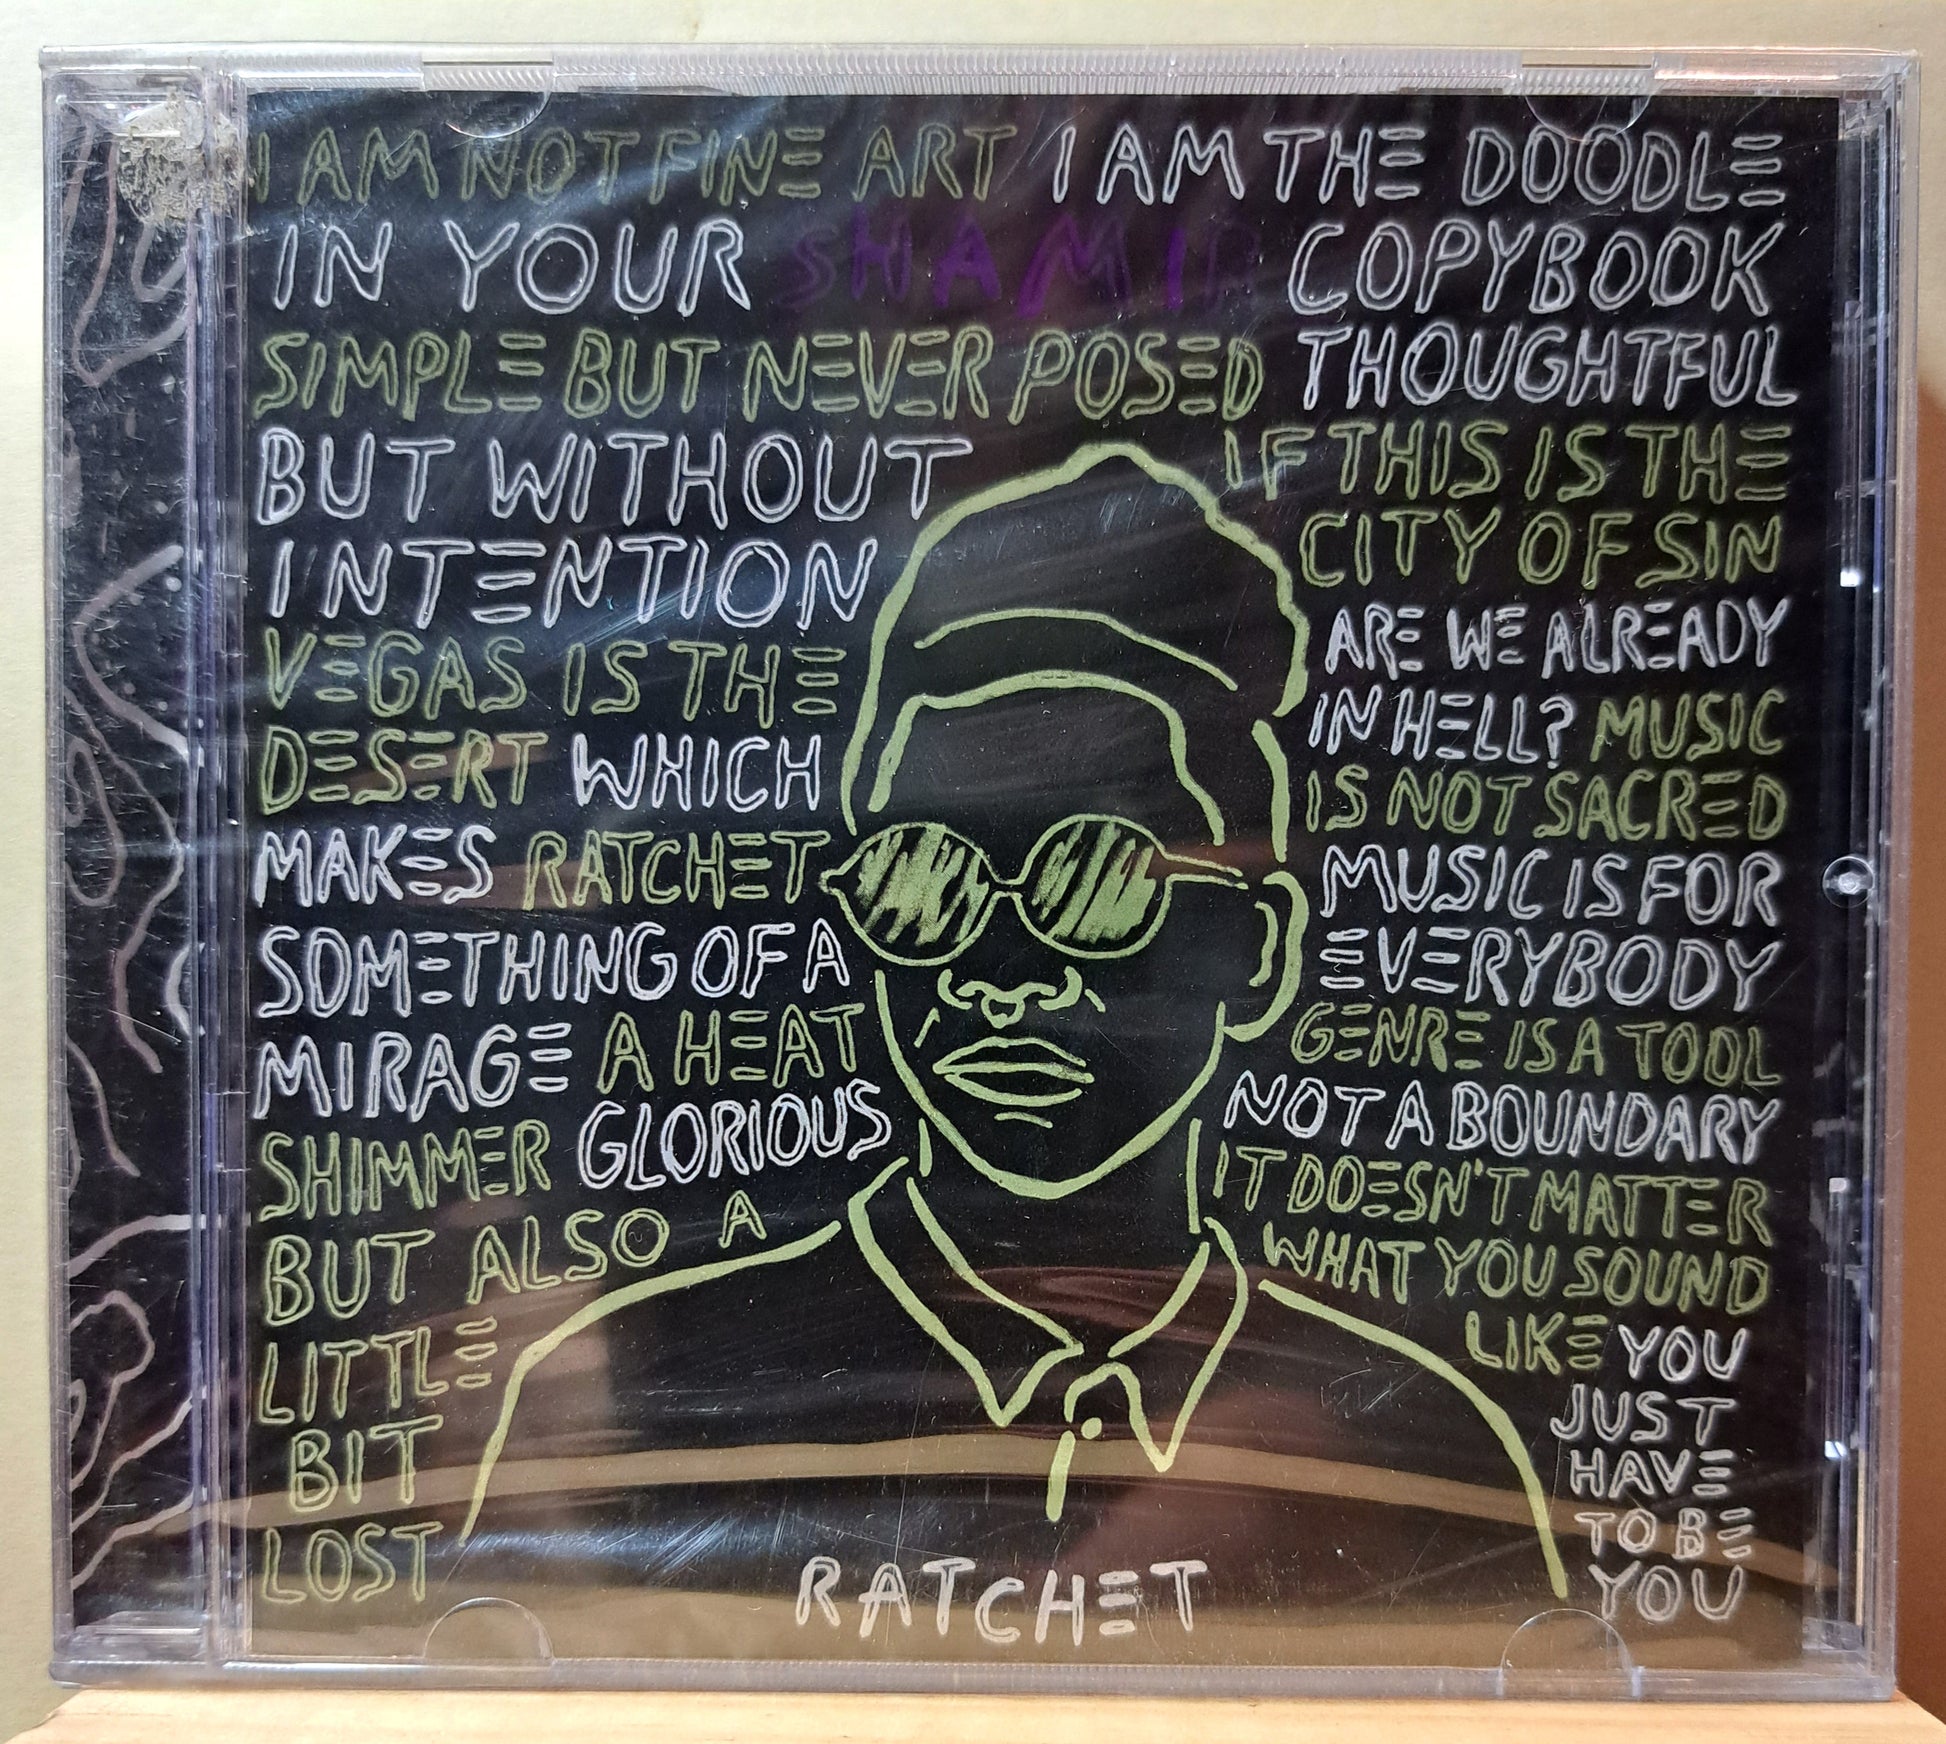 I AM NOT FINE ART I AM THE DOODLE
IN YOUR SHAMIR COPYBOOK
SIMPLE BUT NEVER POSED THOUGHTFUL
BUT WITHOUT
INTENTION
VEGAS IS THE
DESERT WHICH
MAKES RATCHET
SOMETHING OF A
MIRAGE A HEAT
SHIMMER GLORIOUS
BUT ALSO A
LITTLE
BIT
LOST
IF THIS IS THE
CITY OF SIN
ARE WE ALREADY
IN HELL? MUSIC
IS NOT SACRED
MUSIC IS FOR
EVERYBODY
GENRE IS A TOOL
NOT A BOUNDARY
IT DOESN'T MATTER
WHAT YOU SOUND
LIKE YOU
JUST
HAVE
TO BE
YOU
RATCHET